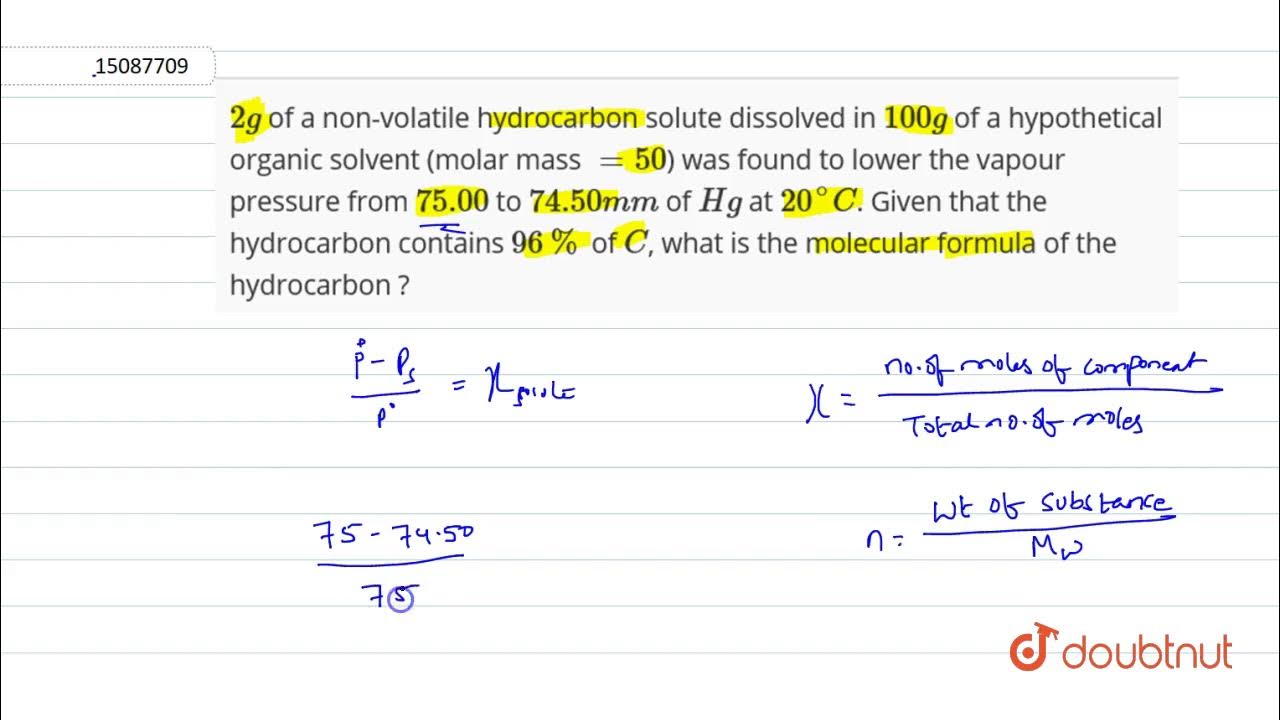 15087709
2g of a non-volatile hydrocarbon solute dissolved in 100g of a hypothetical
organic solvent (molar mass = 50) was found to lower the vapour
pressure from 75.00 to 74.50mm of Hg at 20°C. Given that the
hydrocarbon contains 96% of C, what is the molecular formula of the
hydrocarbon ?
P° - Ps
P°
= χsolute
χ =
no. of moles of component
Total no. of moles
75 - 74.50
75
n =
Wt of substance
Mw
doubtnut